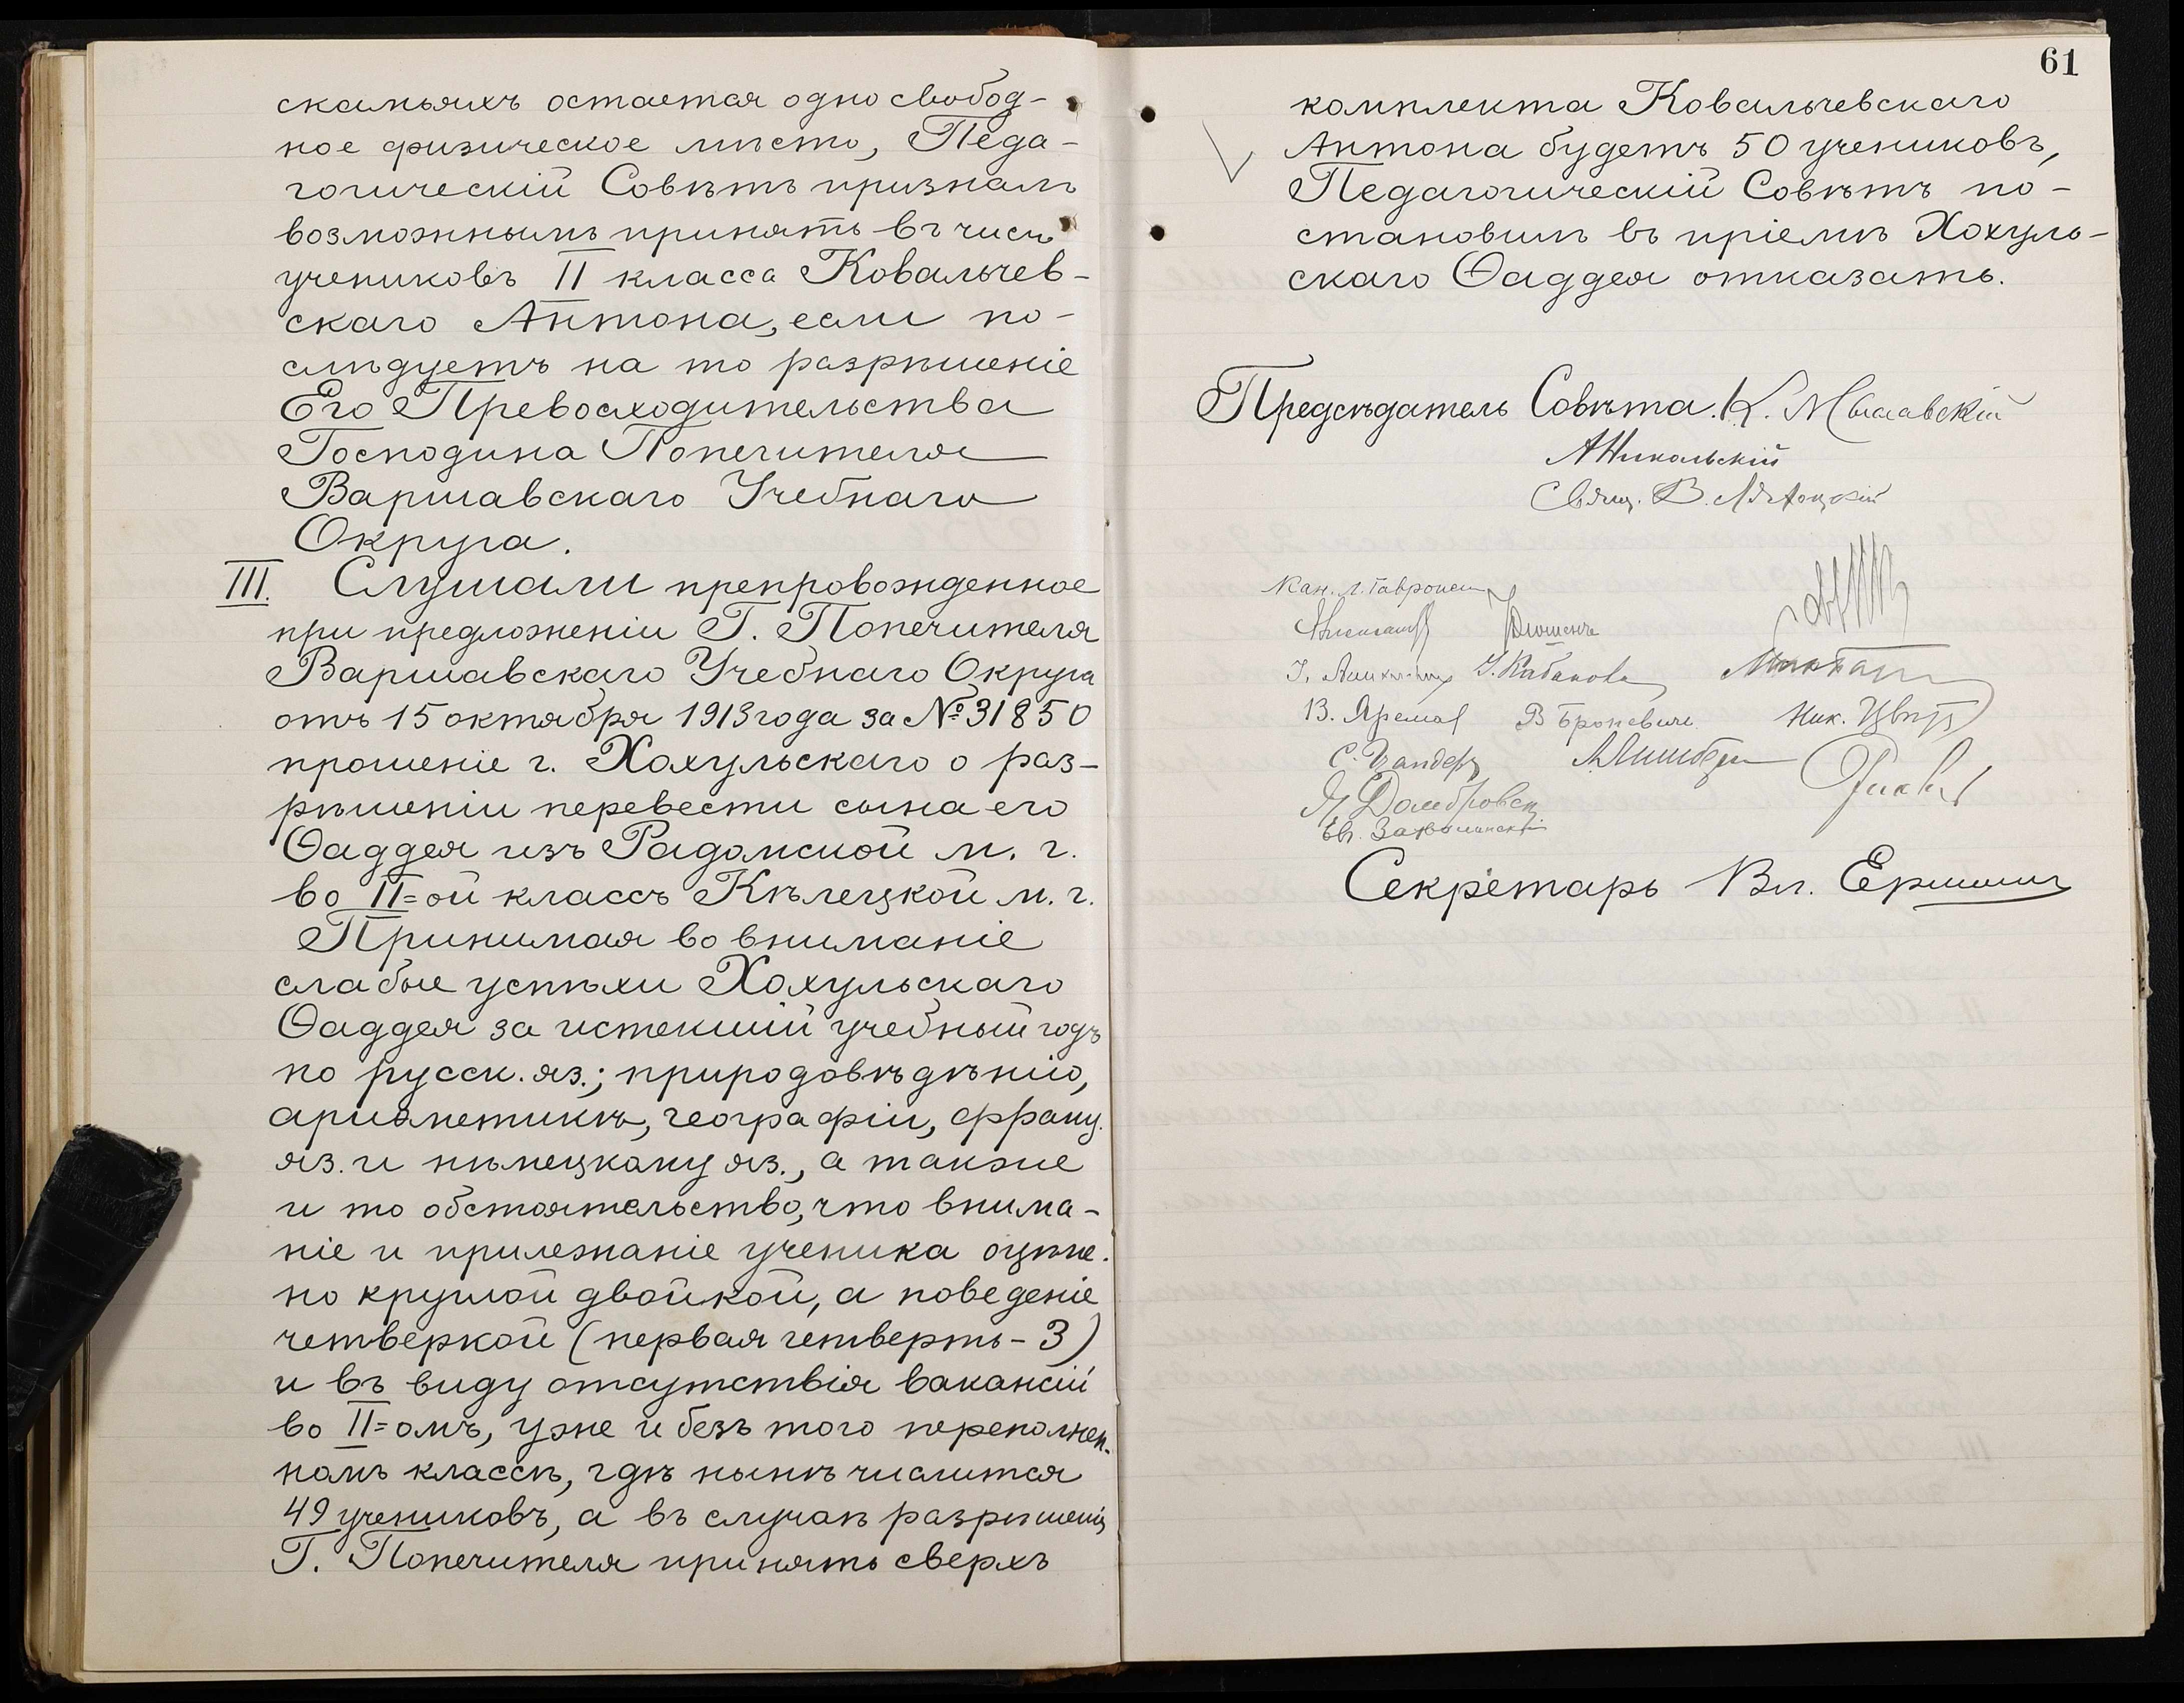 скамьяхъ остается одно свобод-
ное физическое мѣсто, Педа-
гогическій Совѣтъ призналъ
возможнымъ принять въ число
учениковъ II класса Ковальчев-
скаго Антона, если по-
слѣдуетъ на то разрѣшеніе
Его Превосходительства
Господина Попечителя
Варшавскаго Учебнаго
Округа.
III. Слушали препровожденное
при предложеніи Г. Попечителя
Варшавскаго Учебнаго Округа
отъ 15 октября 1913 года за № 31850
прошеніе г. Хохульскаго о раз-
рѣшеніи перевести сына его
Ѳаддея изъ Радомской м. г.
во II=ой классъ Кѣлецкой м. г.
Принимая во вниманіе
слабые успѣхи Хохульскаго
Ѳаддея за истекшій учебный годъ
по русск. яз.; природовѣдѣнію,
ариѳметикѣ, географіи, франц.
яз. и нѣмецкому яз., а также
и то обстоятельство, что внима-
ніе и прилежаніе ученика оцѣне-
но круглой двойкой, а поведеніе
четверкой (первая четверть - 3)
и въ виду отсутствія вакансій
во II=омъ, уже и безъ того переполнен-
номъ классѣ, гдѣ нынѣ числится
49 учениковъ, а въ случаѣ разрѣшенія
Г. Попечителя принять сверхъ
61
комплекта Ковальчевскаго
Антона будетъ 50 учениковъ,
Педагогическій Совѣтъ по-
становилъ въ пріемѣ Хохуль-
скаго Ѳаддея отказать.
Предсѣдатель Совѣта. К.
А Никольскій
Свящ. В.
Кан. Л. Гавронск
У. Кабанова
В. В Броневичъ Ник.
С. Цандеръ
Домбровск
Евг.
Секретарь Вл. Ершинъ